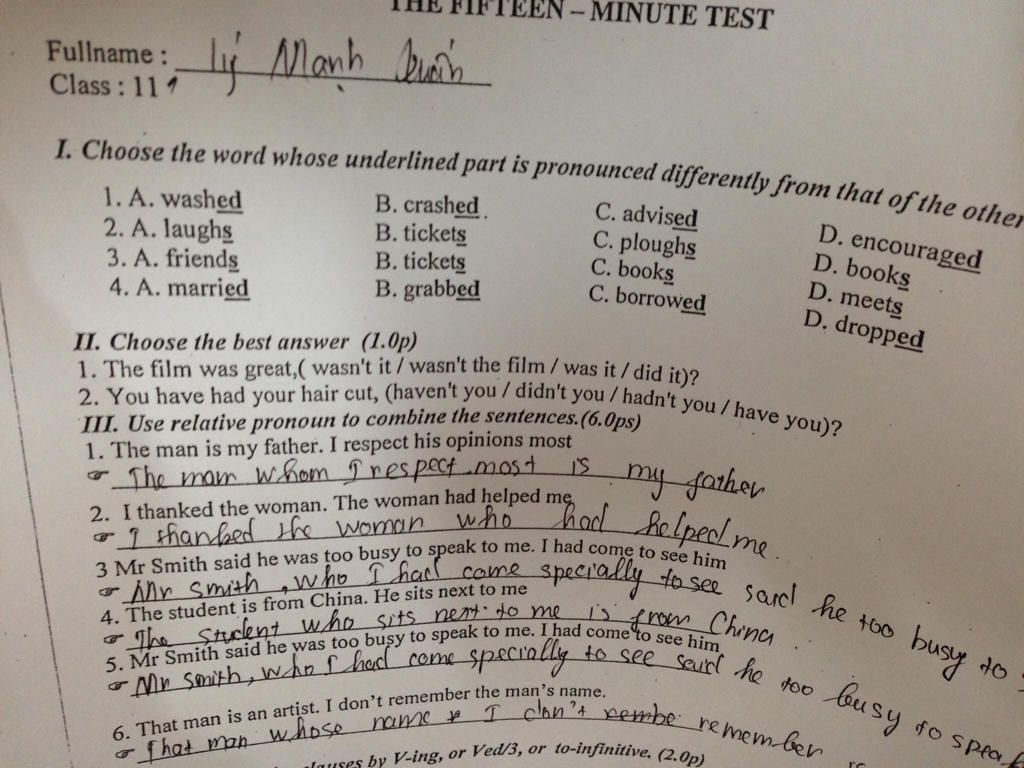 THE FIFTEEN – MINUTE TEST
Fullname : Lý Mạnh
Class : 11
I. Choose the word whose underlined part is pronounced differently from that of the other
1. A. washed B. crashed . C. advised D. encouraged
2. A. laughs B. tickets C. ploughs D. books
3. A. friends B. tickets C. books D. meets
4. A. married B. grabbed C. borrowed D. dropped
II. Choose the best answer (1.0p)
1. The film was great,( wasn't it / wasn't the film / was it / did it)?
2. You have had your hair cut, (haven't you / didn't you / hadn't you / have you)?
III. Use relative pronoun to combine the sentences.(6.0ps)
1. The man is my father. I respect his opinions most
☞ The man whom I respect most is my father
2. I thanked the woman. The woman had helped me
☞ I thanked the woman who had helped me .
3 Mr Smith said he was too busy to speak to me. I had come to see him
☞ Mr Smith , who I had come specially to see said he too busy to
4. The student is from China. He sits next to me
☞ The student who sits next to me is from China .
5. Mr Smith said he was too busy to speak to me. I had come to see him
☞ Mr Smith , who I had come specially to see said he too busy to speak
6. That man is an artist. I don't remember the man's name.
☞ That man whose name I don't remember is
clauses by V-ing, or Ved/3, or to-infinitive. (2.0p)